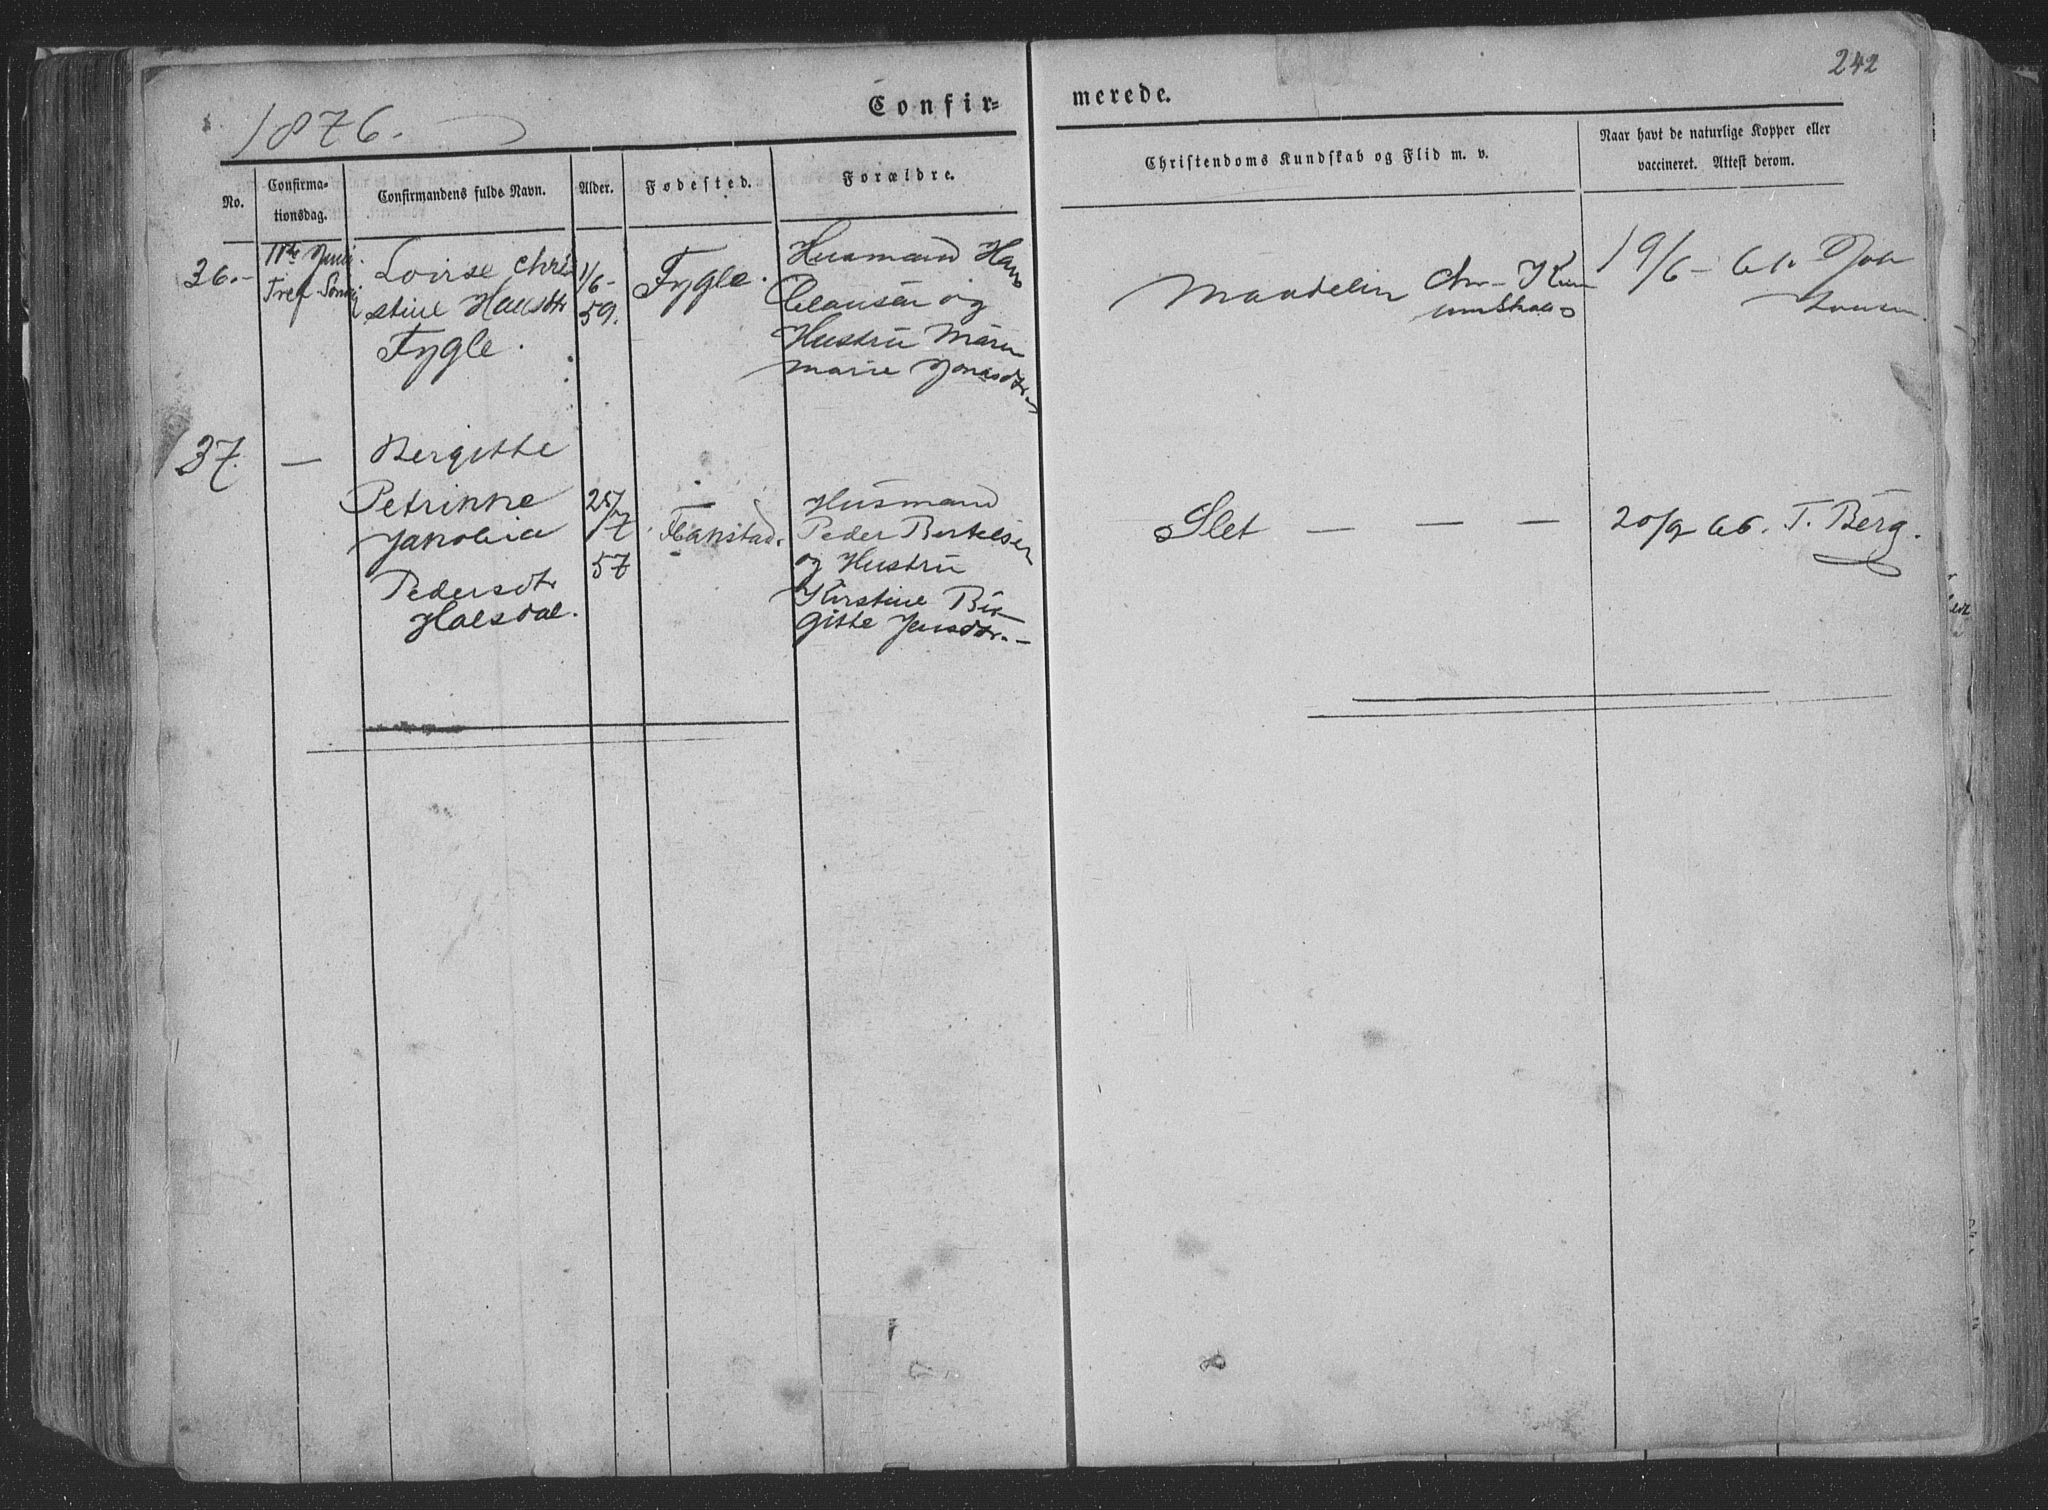 242
1876.
Confir=
merede.
No.
Confirma-
tionsdag.
Confirmandens fulde Navn.
Alder.
Fødested.
Forældre.
Christendoms Kundskab og Flid m. v.
Naar havt de naturlige Kopper eller
vaccineret. Attest derom.
36.-
11te Juni.
Tref. Sönd
Lovise Chri
stine Hansdtr
Fygle.
1/6-
59.
Fygle.
Husmand Hans
Clausen og
Hustru Maren
Marie Jonasdtr.
Maadelin Chr- Kun
19/6- 61.
37.
—
Bergitte
Petrinne
Jakobia
Pedersdtr
Holsdal.
25/7
57
Flakstad.
Husmand
Peder Bertelsen
og Hustru
Kirstine Bir
gitte Jensdtr.-
Slet — — —
20/9 66. T. Berg.